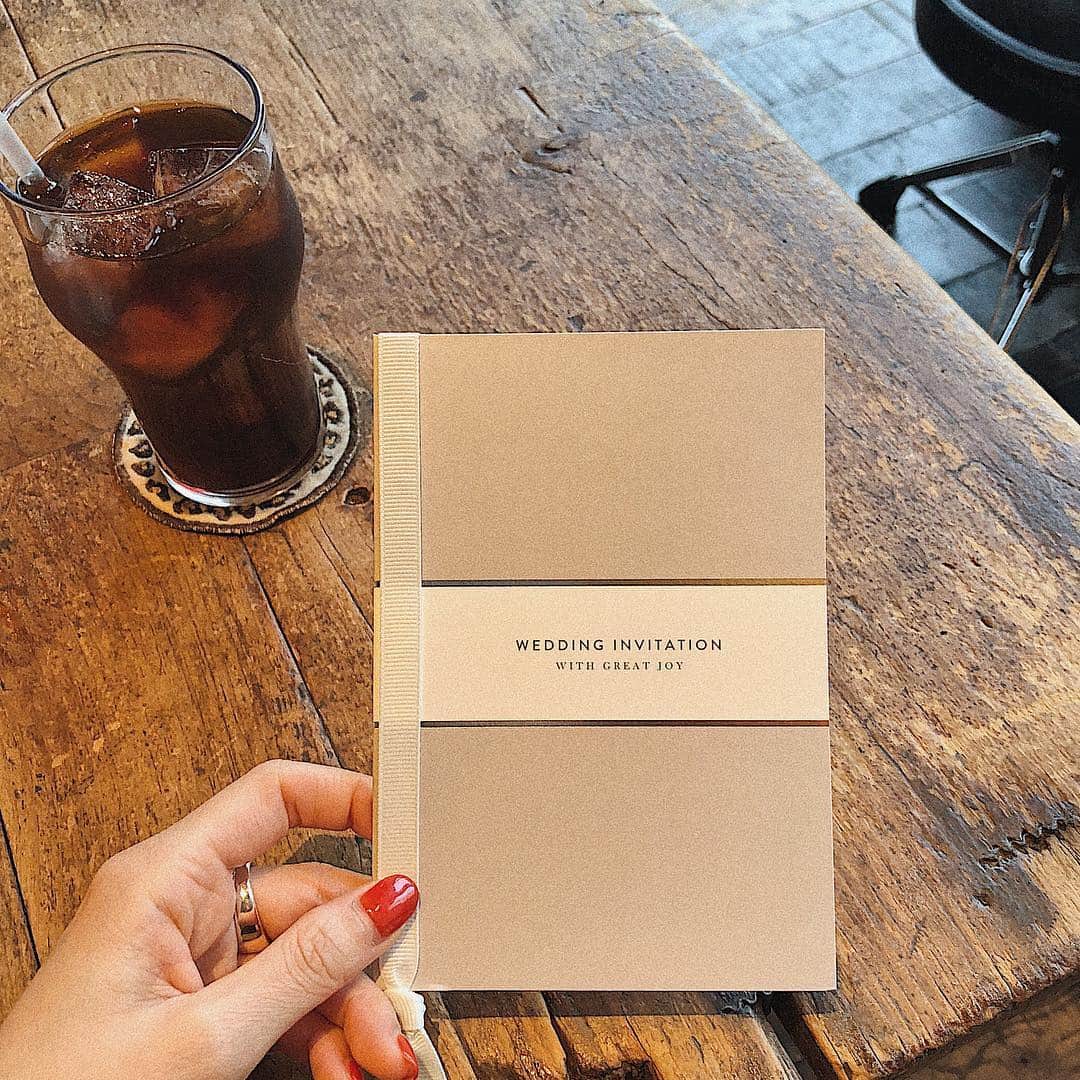 WEDDING INVITATION
WITH GREAT JOY